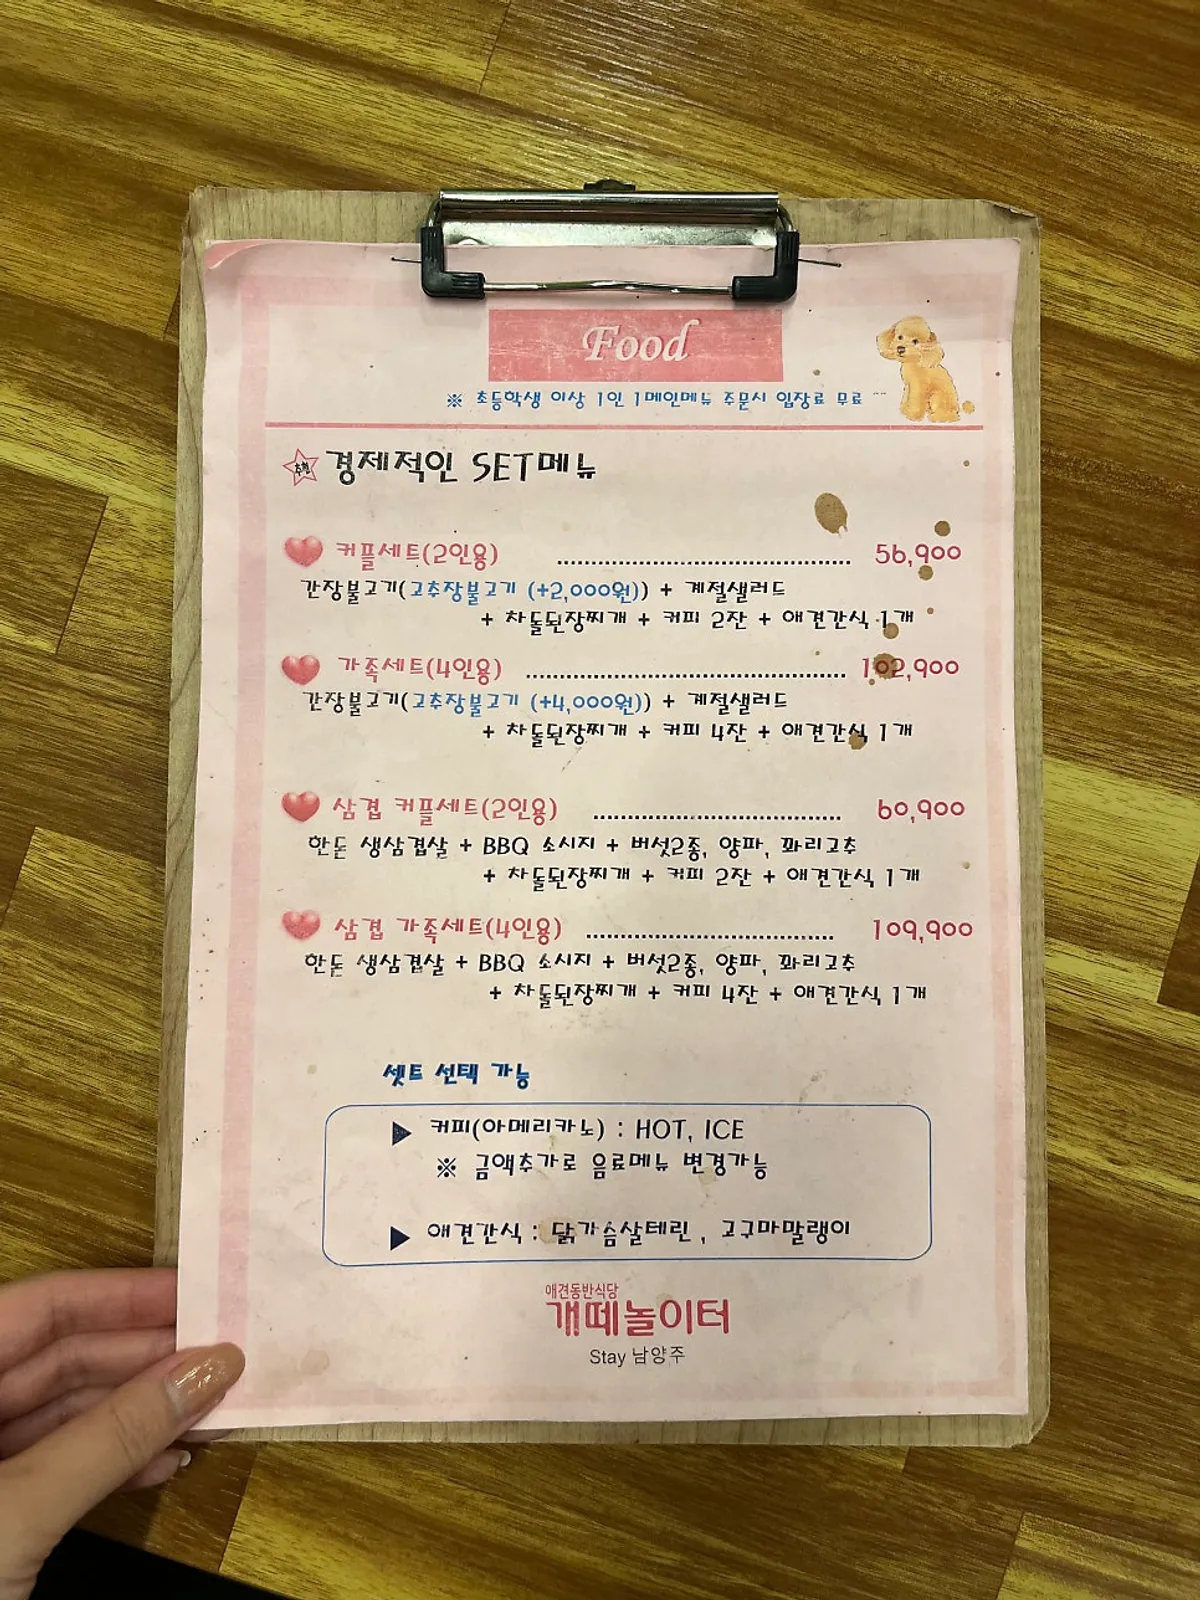 Food
※ 초등학생 이상 1인 1메인메뉴 주문시 입장료 무료 ^^
추천 경제적인 SET메뉴
커플세트(2인용) 56,900
간장불고기(고추장불고기 (+2,000원)) + 계절샐러드
+ 차돌된장찌개 + 커피 2잔 + 애견간식 1개
가족세트(4인용) 102,900
간장불고기(고추장불고기 (+4,000원)) + 계절샐러드
+ 차돌된장찌개 + 커피 4잔 + 애견간식 1개
삼겹 커플세트(2인용) 60,900
한돈 생삼겹살 + BBQ 소시지 + 버섯2종, 양파, 꽈리고추
+ 차돌된장찌개 + 커피 2잔 + 애견간식 1개
삼겹 가족세트(4인용) 109,900
한돈 생삼겹살 + BBQ 소시지 + 버섯2종, 양파, 꽈리고추
+ 차돌된장찌개 + 커피 4잔 + 애견간식 1개
셋트 선택 가능
▶ 커피(아메리카노) : HOT, ICE
※ 금액추가로 음료메뉴 변경가능
▶ 애견간식 : 닭가슴살테린, 고구마말랭이
애견동반식당
개떼놀이터
Stay 남양주